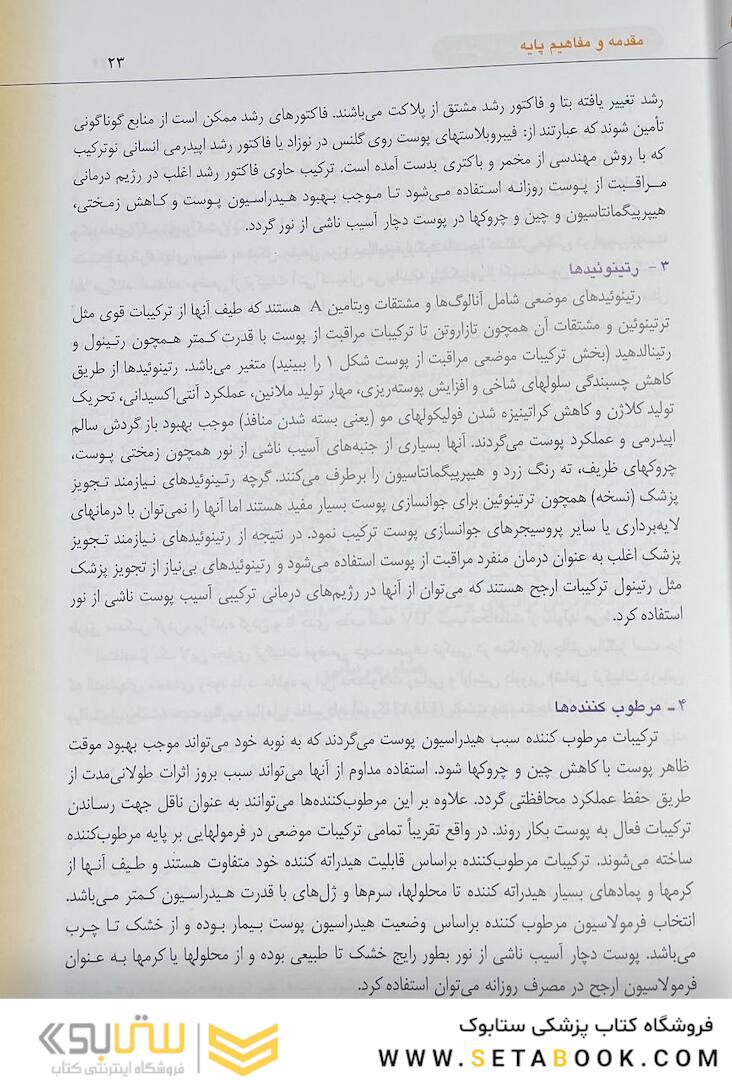 مقدمه و مفاهیم پایه
۲۳
رشد تغییر یافته بتا و فاکتور رشد مشتق از پلاکت می‌باشند. فاکتورهای رشد ممکن است از منابع گوناگونی
تأمین شوند که عبارتند از: فیبروبلاستهای پوست روی گلنس در نوزاد یا فاکتور رشد اپیدرمی انسانی نوترکیب
که با روش مهندسی از مخمر و باکتری بدست آمده است. ترکیب حاوی فاکتور رشد اغلب در رژیم درمانی
مراقبت از پوست روزانه استفاده می‌شود تا موجب بهبود هیدراسیون پوست و کاهش زمختی،
هیپرپیگمانتاسیون و چین و چروکها در پوست دچار آسیب ناشی از نور گردد.
۳ - رتینوئیدها
رتینوئیدهای موضعی شامل آنالوگ‌ها و مشتقات ویتامین A هستند که طیف آنها از ترکیبات قوی مثل
ترتینوئین و مشتقات آن همچون تازاروتن تا ترکیبات مراقبت از پوست با قدرت کمتر همچون رتینول و
رتینالدهید (بخش ترکیبات موضعی مراقبت از پوست شکل ۱ را ببینید) متغیر می‌باشد. رتینوئیدها از طریق
کاهش چسبندگی سلولهای شاخی و افزایش پوسته‌ریزی، مهار تولید ملانین، عملکرد آنتی‌اکسیدانی، تحریک
تولید کلاژن و کاهش کراتینیزه شدن فولیکولهای مو (یعنی بسته شدن منافذ) موجب بهبود باز گردش سالم
اپیدرمی و عملکرد پوست می‌گردند. آنها بسیاری از جنبه‌های آسیب ناشی از نور همچون زمختی پوست،
چروکهای ظریف، ته رنگ زرد و هیپرپیگمانتاسیون را برطرف می‌کنند. گرچه رتینوئیدهای نیازمند تجویز
پزشک (نسخه) همچون ترتینوئین برای جوانسازی پوست بسیار مفید هستند اما آنها را نمی‌توان با درمانهای
لایه‌برداری یا سایر پروسیجرهای جوانسازی پوست ترکیب نمود. در نتیجه از رتینوئیدهای نیازمند تجویز
پزشک اغلب به عنوان درمان منفرد مراقبت از پوست استفاده می‌شود و رتینوئیدهای بی‌نیاز از تجویز پزشک
مثل رتینول ترکیبات ارجح هستند که می‌توان از آنها در رژیم‌های درمانی ترکیبی آسیب پوست ناشی از نور
استفاده کرد.
۴ - مرطوب کننده‌ها
ترکیبات مرطوب کننده سبب هیدراسیون پوست می‌گردند که به نوبه خود می‌تواند موجب بهبود موقت
ظاهر پوست با کاهش چین و چروکها شود. استفاده مداوم از آنها می‌تواند سبب بروز اثرات طولانی‌مدت از
طریق حفظ عملکرد محافظتی گردد. علاوه بر این مرطوب‌کننده‌ها می‌توانند به عنوان ناقل جهت رساندن
ترکیبات فعال به پوست بکار روند. در واقع تقریباً تمامی ترکیبات موضعی در فرمولهایی بر پایه مرطوب‌کننده
ساخته می‌شوند. ترکیبات مرطوب‌کننده براساس قابلیت هیدراته کننده خود متفاوت هستند و طیف آنها از
کرمها و پمادهای بسیار هیدراته کننده تا محلولها، سرم‌ها و ژل‌های با قدرت هیدراسیون کمتر می‌باشد.
انتخاب فرمولاسیون مرطوب کننده براساس وضعیت هیدراسیون پوست بیمار بوده و از خشک تا چرب
می‌باشد. پوست دچار آسیب ناشی از نور بطور رایج خشک تا طبیعی بوده و از محلولها یا کرمها به عنوان
فرمولاسیون ارجح در مصرف روزانه می‌توان استفاده کرد.
فروشگاه کتاب پزشکی ستابوک
WWW.SETABOOK.COM
ستابوک
فروشگاه اینترنتی کتاب